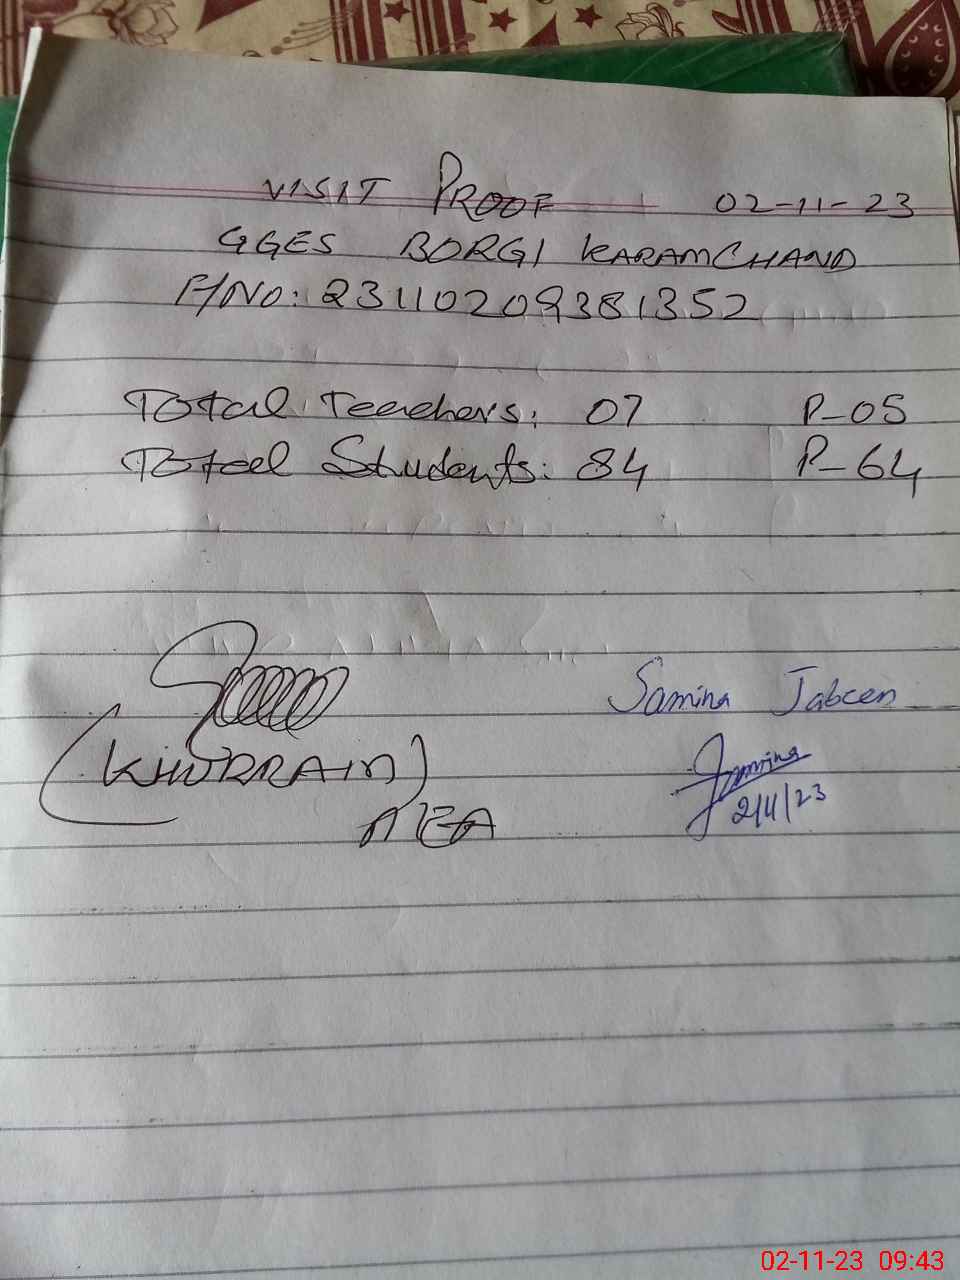 VISIT PROOF 02-11-23
GGES BORGI KARAMCHAND
P/NO: 23110209381352
Total Teachers: 07 P-05
Total Students: 84 P-64
Samina Jabeen
(KHURRAM)
Samina
2/11/23
MEA
02-11-23 09:43